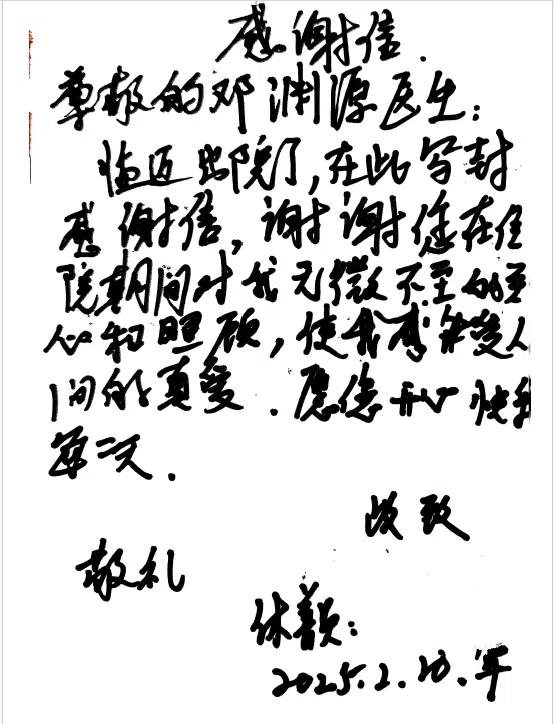 感谢信.
尊敬的邓渊源医生:
临近出院了,在此写封
感谢信,谢谢您在住
院期间对我无微不至的关
心和照顾,使我感受人
间的真爱.愿您开心快乐
每一天.
此致
敬礼
2025.2.20.